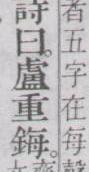 者五字在每
詩曰盧重鋂。